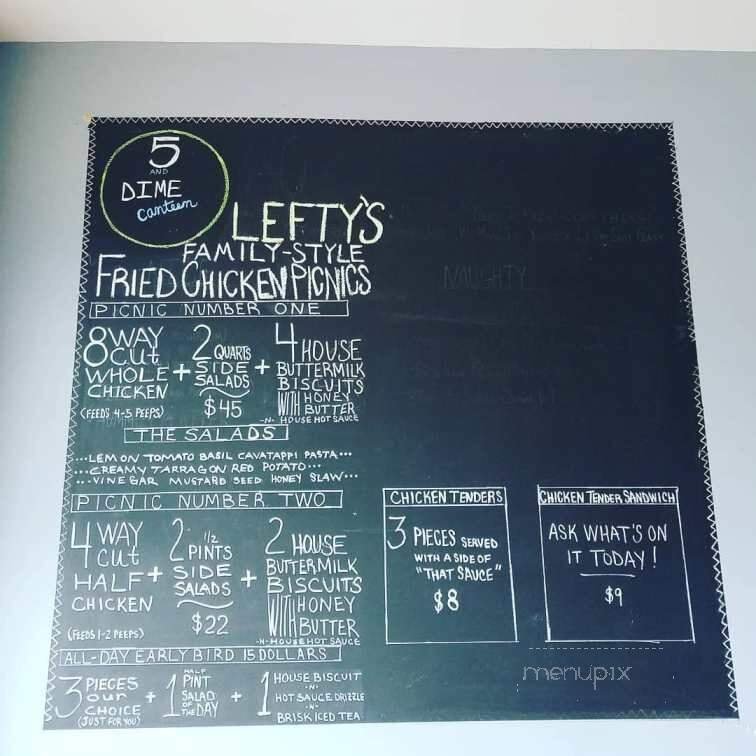 5
AND
DIME
canteen
LEFTY'S
FAMILY-STYLE
FRIED CHICKEN PICNICS
PICNIC NUMBER ONE
8 WAY
CUT
WHOLE
CHICKEN
(FEEDS 4-5 PEEPS)
+
2 QUARTS
SIDE
SALADS
$45
+
4 HOUSE
BUTTERMILK
BISCUITS
WITH HONEY
BUTTER
-N- HOUSE HOT SAUCE
THE SALADS
...LEMON TOMATO BASIL CAVATAPPI PASTA...
...CREAMY TARRAGON RED POTATO...
...VINEGAR MUSTARD SEED HONEY SLAW...
PICNIC NUMBER TWO
4 WAY
CUT
HALF
CHICKEN
(FEEDS 1-2 PEEPS)
+
2 1/2
PINTS
SIDE
SALADS
$22
+
2 HOUSE
BUTTERMILK
BISCUITS
WITH HONEY
BUTTER
-N- HOUSE HOT SAUCE
ALL-DAY EARLY BIRD 15 DOLLARS
3 PIECES
OUR
CHOICE
(JUST FOR YOU)
+
1 HALF
PINT
SALAD
OF THE
DAY
+
1 HOUSE BISCUIT
-N-
HOT SAUCE DRIZZLE
-N-
BRISK ICED TEA
NAUGHTY
CHICKEN TENDERS
3 PIECES SERVED
WITH A SIDE OF
"THAT SAUCE"
$8
CHICKEN TENDER SANDWICH
ASK WHAT'S ON
IT TODAY!
$9
menupix